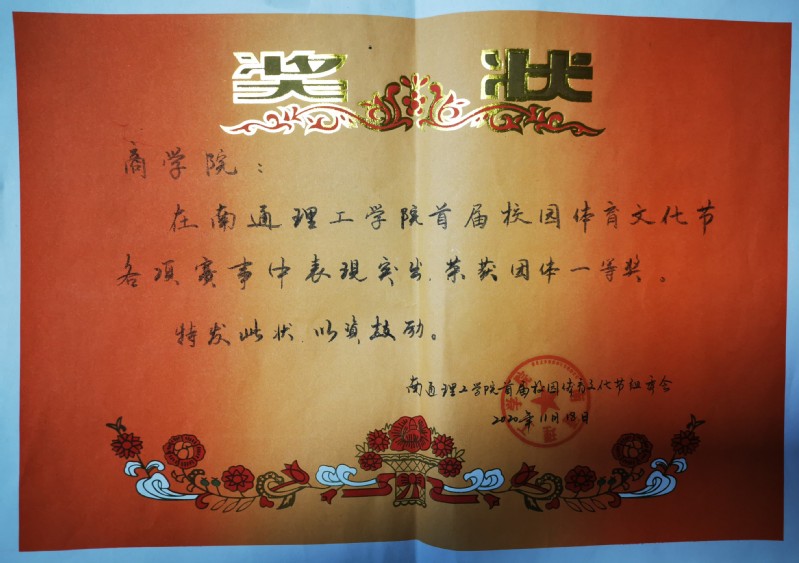 奖状
商学院：
在南通理工学院首届校园体育文化节
各项赛事中表现突出，荣获团体一等奖。
特发此状，以资鼓励。
南通理工学院首届校园体育文化节组委会
2020年11月18日